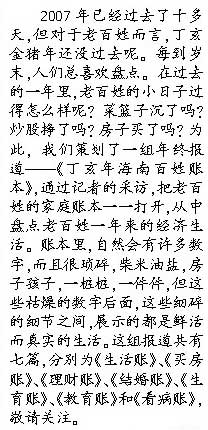 2007 年已经过去了十多
天,但对于老百姓而言,丁亥
金猪年还没过去呢。每到岁
末,人们总喜欢盘点。在过去
的一年里,老百姓的小日子过
得怎么样呢?菜篮子沉了吗?
炒股挣了吗?房子买了吗?为
此,我们策划了一组年终报
道——《丁亥年海南百姓账
本》,通过记者的采访,把老百
姓的家庭账本一一打开,从中
盘点老百姓一年来的经济生
活。账本里,自然会有许多数
字,而且很琐碎,柴米油盐,房
子孩子,一桩桩,一件件,但这
些枯燥的数字后面,这些细碎
的细节之间,展示的都是鲜活
而真实的生活。这组报道共有
七篇,分别为《生活账》、《买房
账》、《理财账》、《结婚账》、《生
育账》、《教育账》和《看病账》,
敬请关注。